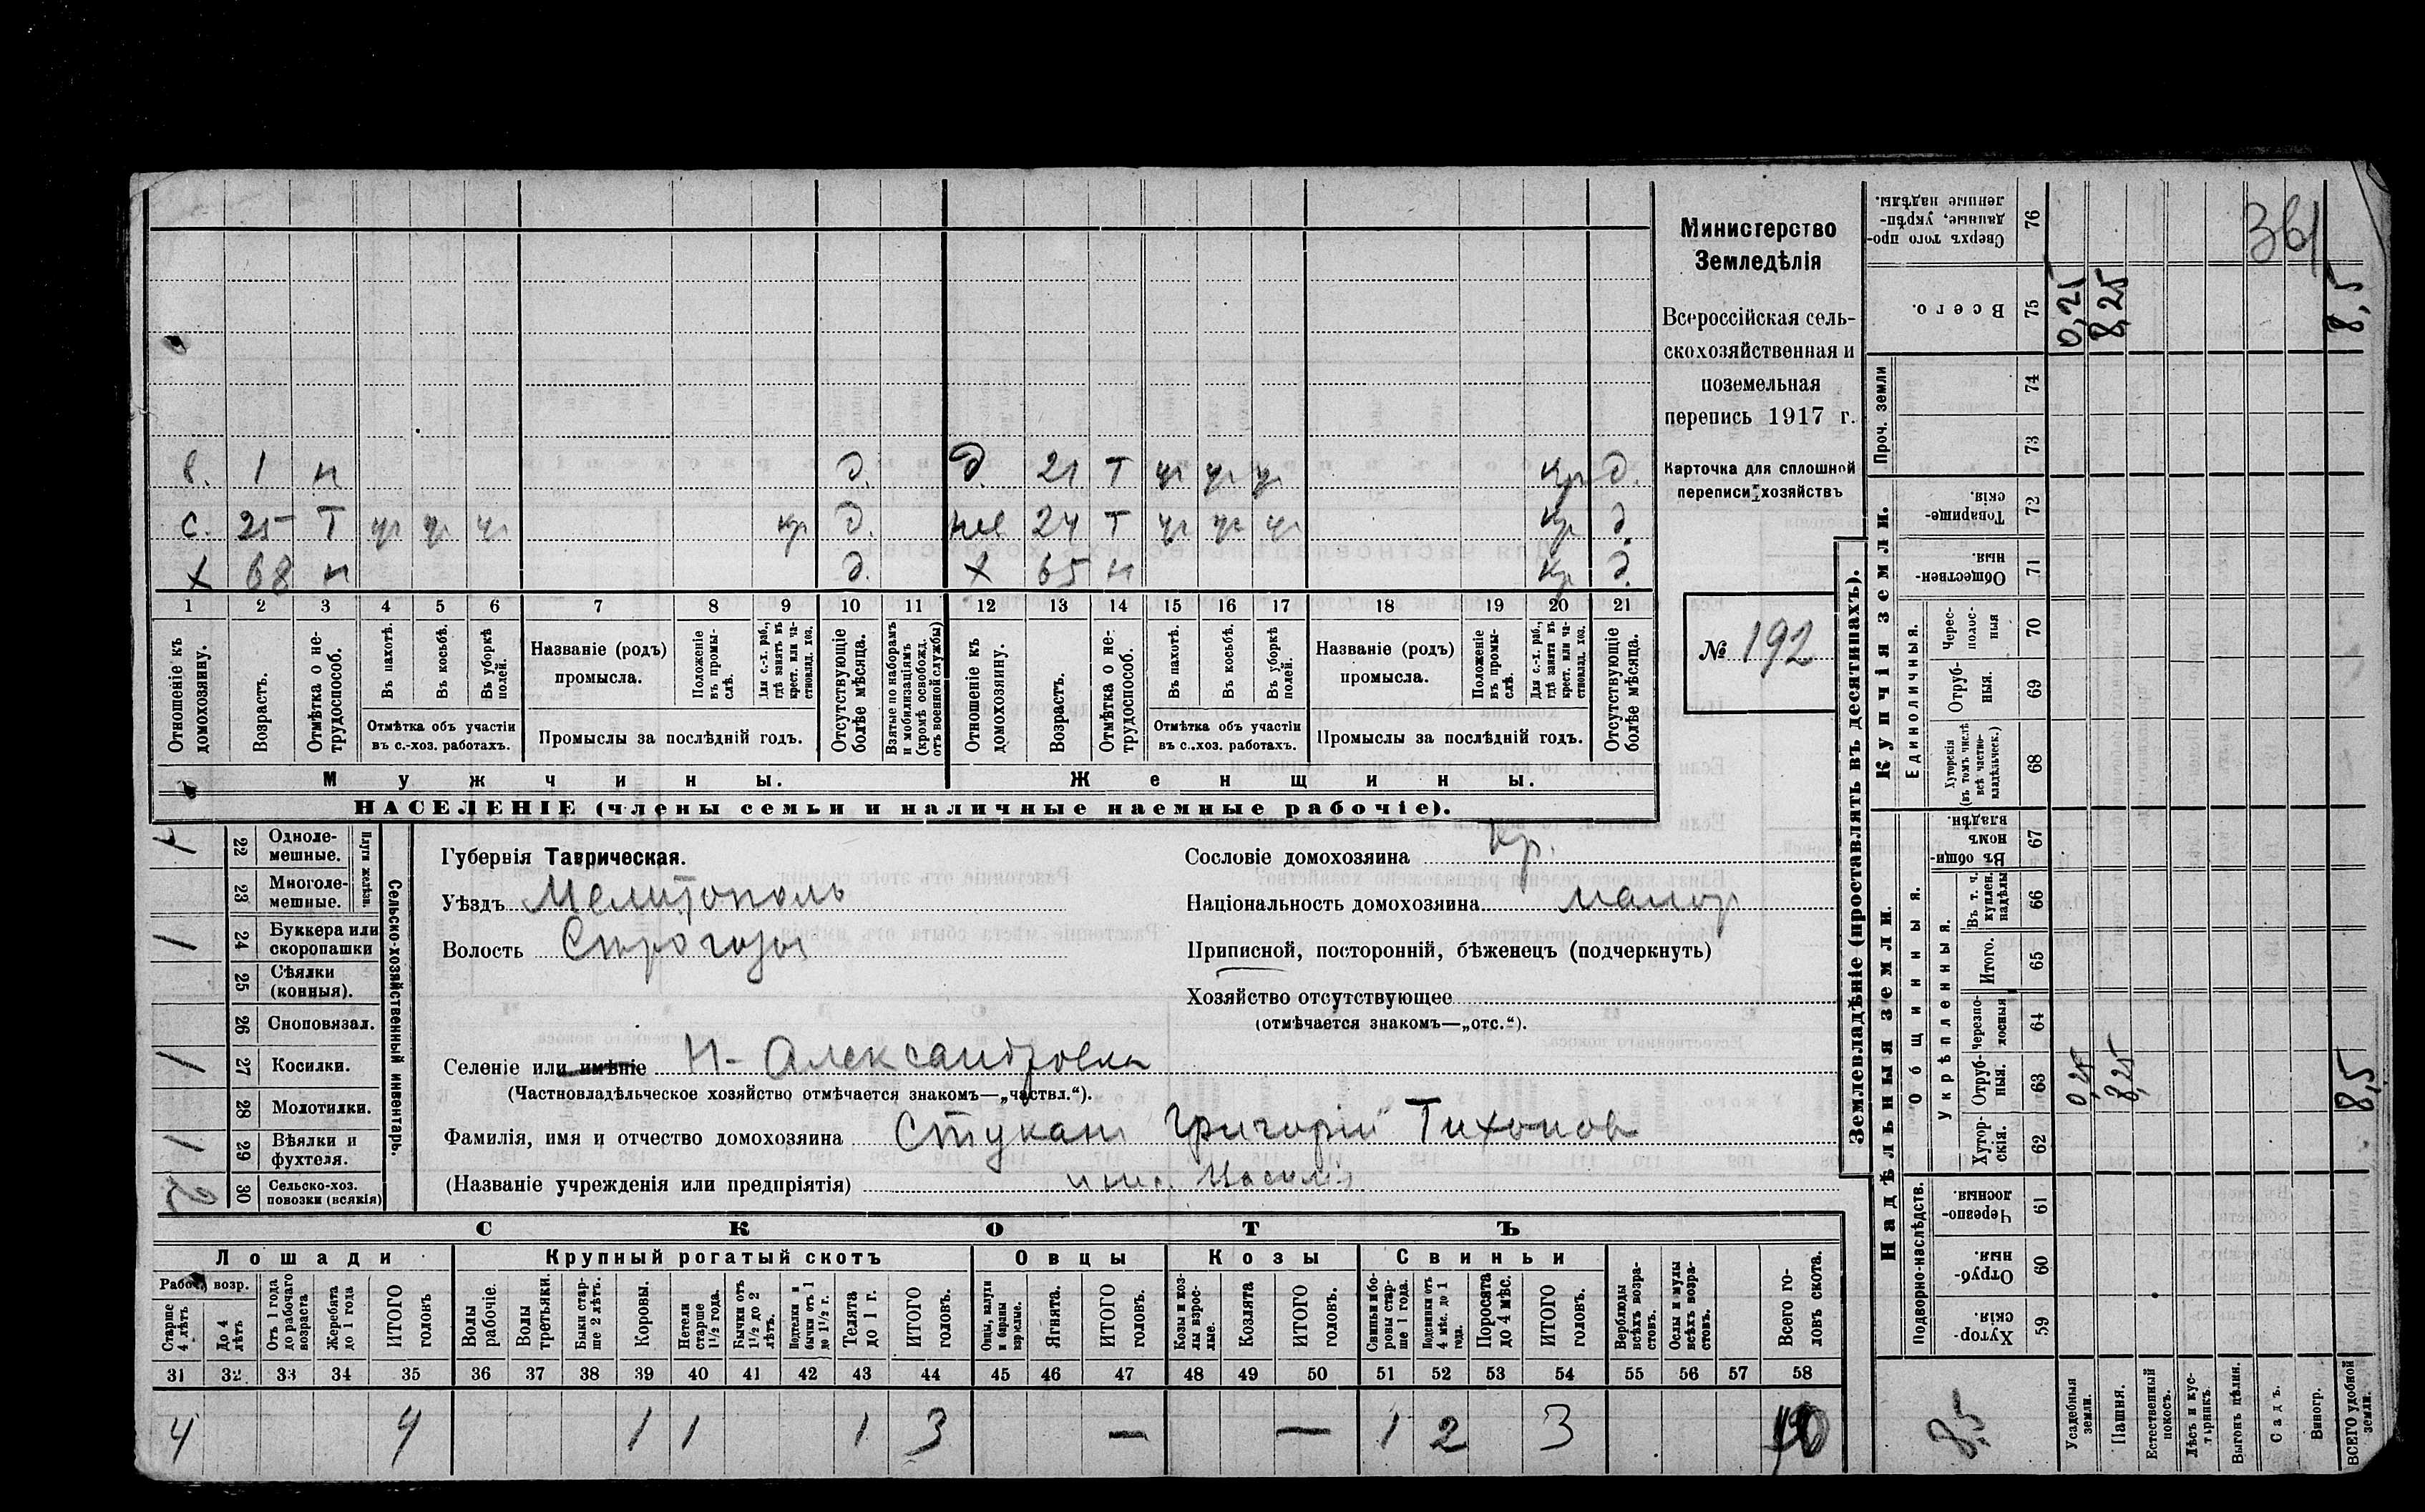 Министерство
Земледѣлія
Всероссійская сель-
скохозяйственная и
поземельная
перепись 1917 г.
Карточка для сплошной
переписи хозяйствъ
№ 192
361
в. 1 н д. д. 21 т уч уч уч кр д.
с. 25 т уч уч уч кр д. нев 24 т уч уч уч кр д.
х 68 н д. х 65 н кр д.
1 2 3 4 5 6 7 8 9 10 11 12 13 14 15 16 17 18 19 20 21
Отношеніе къ домохозяину.
Возрастъ.
Отмѣтка о не-трудоспособ.
Въ пахотѣ.
Въ косьбѣ.
Въ уборкѣ полей.
Отмѣтка объ участіи
въ с.-хоз. работахъ.
Названіе (родъ)
промысла.
Положеніе въ промы-слѣ.
Для с.-х. раб., гдѣ занятъ въ крест. или ча-стновлад. хоз.
Промыслы за послѣдній годъ.
Отсутствующіе болѣе мѣсяца.
Взятые по наборамъ и мобилизаціямъ (кромѣ освобожд. отъ военной службы)
Отношеніе къ домохозяину.
Возрастъ.
Отмѣтка о не-трудоспособ.
Въ пахотѣ.
Въ косьбѣ.
Въ уборкѣ полей.
Отмѣтка объ участіи
въ с.-хоз. работахъ.
Названіе (родъ)
промысла.
Положеніе въ промы-слѣ.
Для с.-х. раб., гдѣ занята въ крест. или ча-стновлад. хоз.
Промыслы за послѣдній годъ.
Отсутствующіе болѣе мѣсяца.
Мужчины. Женщины.
НАСЕЛЕНІЕ (члены семьи и наличные наемные рабочіе).
Сельско-хозяйственный инвентарь.
Плуги желѣзн.
1 22 Одноле-мешные.
23 Многоле-мешные.
1 24 Буккера или скоропашки
25 Сѣялки (конныя).
26 Сноповязал.
1 27 Косилки.
28 Молотилки.
1 29 Вѣялки и фухтеля.
2 30 Сельско-хоз. повозки (всякія)
Губернія Таврическая.
Уѣздъ Мелитополь
Волость Строгозы
Сословіе домохозяина кр.
Національность домохозяина малор
Приписной, посторонній, бѣженецъ (подчеркнуть)
Хозяйство отсутствующее
(отмѣчается знакомъ—„отс.“).
Селеніе или имѣніе Н-Александровка
(Частновладѣльческое хозяйство отмѣчается знакомъ—„частвл.“).
Фамилія, имя и отчество домохозяина Стукан Григорій Тихонов
(Названіе учрежденія или предпріятія)
СКОТЪ
Лошади Крупный рогатый скотъ Овцы Козы Свиньи
Рабоч. возр.
Старше 4 лѣтъ
До 4 лѣтъ
Отъ 1 года до рабочаго возраста
Жеребята до 1 года
ИТОГО головъ
Волы рабочіе.
Волы третьяки.
Быки стар-ше 2 лѣтъ.
Коровы.
Нетели старше 1½ года.
Бычки отъ 1½ до 2 лѣтъ.
Подтелки и бычки отъ 1 до 1½ г.
Телята до 1 г.
ИТОГО головъ.
Овцы, валухи и бараны взрослые.
Ягнята.
ИТОГО головъ.
Козы и коз-лы взрос-лые.
Козлята
ИТОГО головъ.
Свиньи и бо-ровы стар-ше 1 года.
Подсвинки отъ 4 мѣс. до 1 года.
Поросята до 4 мѣс.
ИТОГО головъ.
Верблюды всѣхъ возра-стовъ.
Ослы и мулы всѣхъ возра-стовъ.
Всего го-ловъ скота.
31 32 33 34 35 36 37 38 39 40 41 42 43 44 45 46 47 48 49 50 51 52 53 54 55 56 57 58
4 4 1 1 1 3 — — 1 2 3 10
Землевладѣніе (проставлять въ десятинахъ).
Надѣльныя земли.
Подворно-наслѣдств.
59 Хутор-скія.
60 Отруб-ныя.
61 Черезпо-лосныя.
Общинныя.
Укрѣпленныя.
62 Хутор-скія.
63 Отруб-ныя. 0,25 8,25 8,5
64 Черезпо-лосныя
65 Итого.
66 Въ т. ч. куплен. надѣлы
67 Въ общи-номъ владѣн.
Купчія земли.
Единоличныя.
68 Хуторскія (въ томъ числѣ всѣ частно-владѣльческ.)
69 Отруб-ныя.
70 Черес-полос-ныя
71 Обществен-ныя.
72 Товарище-скія.
Проч. земли
73
74
75 Всего. 0,25 8,25 8,5
76 Сверхъ того про-данные, укрѣп-ленные надѣлы.
8,5
Усадебныя земли.
Пашня.
Естественный покосъ.
Лѣсъ и кус-тарникъ.
Выгонъ цѣлин.
Садъ.
Виногр.
ВСЕГО удобной земли.